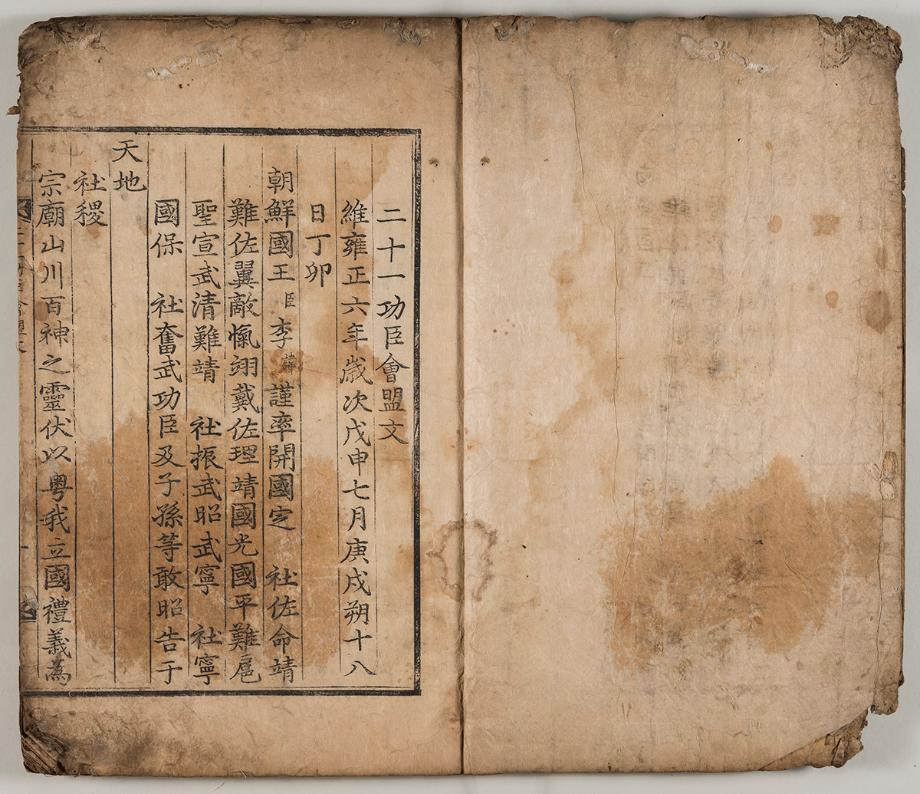 二十一功臣會盟文
維雍正六年歲次戊申七月庚戌朔十八
日丁卯
朝鮮國王臣李謹率開國定 社佐命靖
難佐翼敵愾翊戴佐理靖國光國平難扈
聖宣武清難靖 社振武昭武寧 社寧
國保 社奮武功臣及子孫等敢昭告于
天地
社稷
宗廟山川百神之靈伏以粤我立國禮義爲